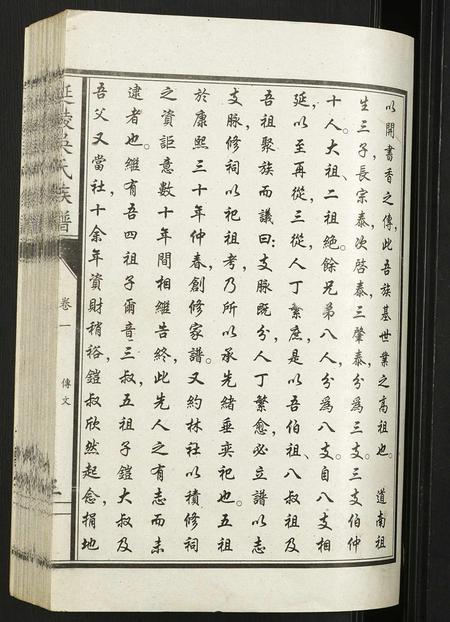 以開書香之傳，此吾族基世業之高祖也。　道南祖
生三子，長宗泰，次啓泰，三肇泰，分爲三支。三支伯仲
十人。大祖、二祖絕，餘兄第八人，分爲八支。自八支相
延，以至再從，三從，人丁繁庶，是以吾伯祖、八叔祖及
吾祖聚族而議曰：支脈既分，人丁繁愈，必立譜以志
支脈，修祠以祀祖考，乃所以承先緒垂奕祀也。五祖
於康熙三十年仲春，創修家譜。又約林社以積修祠
之資，詎意數十年間相繼告終，此先人之有志而未
逮者也。繼有吾四祖子爾音三叔，五祖子鎧大叔及
吾父又當社，十余年資財稍裕，鎧叔欣然起念，捐地
延陵吳氏族譜
卷一
傳文